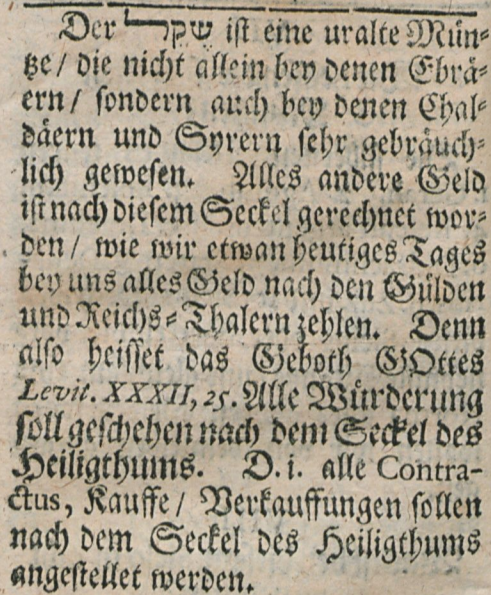 Der שקל ist eine uralte Mün⸗
tze/ die nicht allein bey denen Ebrä⸗
ern/ sondern auch bey denen Chal⸗
däern und Syrern sehr gebräuch⸗
lich gewesen. Alles andere Geld
ist nach diesem Seckel gerechnet wor⸗
den/ wie wir etwan heutiges Tages
bey uns alles Geld nach den Gülden
und Reichs⸗Thalern zehlen. Denn
also heisset das Geboth GOttes
Levit. XXXII, 25. Alle Würderung
soll geschehen nach dem Seckel des
Heiligthums. D. i. alle Contra-
ctus, Kauffe/ Verkauffungen sollen
nach dem Seckel des Heiligthums
angestellet werden.